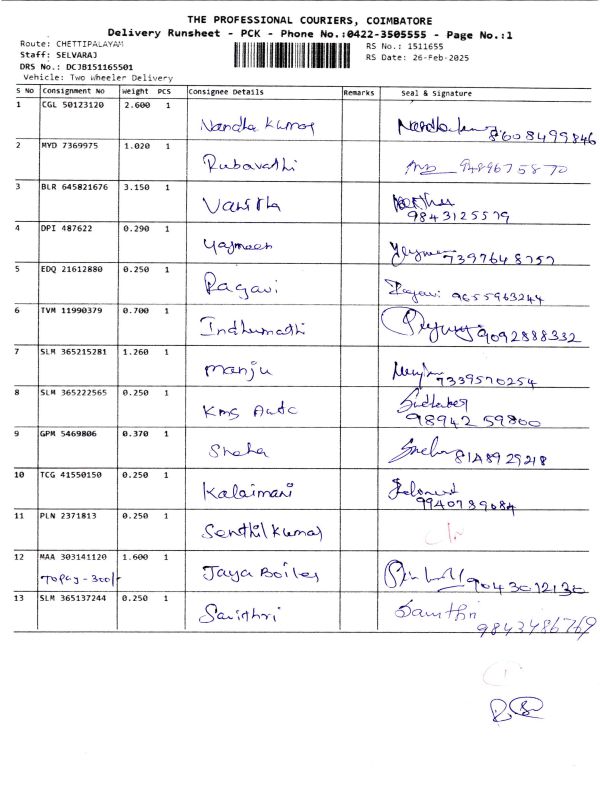 THE PROFESSIONAL COURIERS, COIMBATORE
Delivery Runsheet - PCK - Phone No.:0422-3505555 - Page No.:1
Route: CHETTIPALAYAM
RS No.: 1511655
Staff: SELVARAJ
RS Date: 26-Feb-2025
DRS No.: DCJB151165501
Vehicle: Two Wheeler Delivery
S No Consignment No Weight PCS Consignee Details Remarks Seal & Signature
1 CGL 50123120 2.600 1 Nandha Kumar 8608499846
2 MYD 7369975 1.020 1 Rubavathi 9489675870
3 BLR 645821676 3.150 1 Vanitha 9843125579
4 DPI 487622 0.290 1 Yasmeen 7397648757
5 EDQ 21612880 0.250 1 Ragavi Ragavi 9655963244
6 TVM 11990379 0.700 1 Indhumathi 9092888332
7 SLM 365215281 1.260 1 manju 7339570254
8 SLM 365222565 0.250 1 Kms Auto 98942 59800
9 GPM 5469806 0.370 1 Sneha Sneha
10 TCG 41550150 0.250 1 Kalaimani 9940739084
11 PLN 2371813 0.250 1 Senthil Kumar
12 MAA 303141120 1.600 1 Jaya Boiler 9043012130
Topay - 300/-
13 SLM 365137244 0.250 1 Savithri Savithri
9843486769